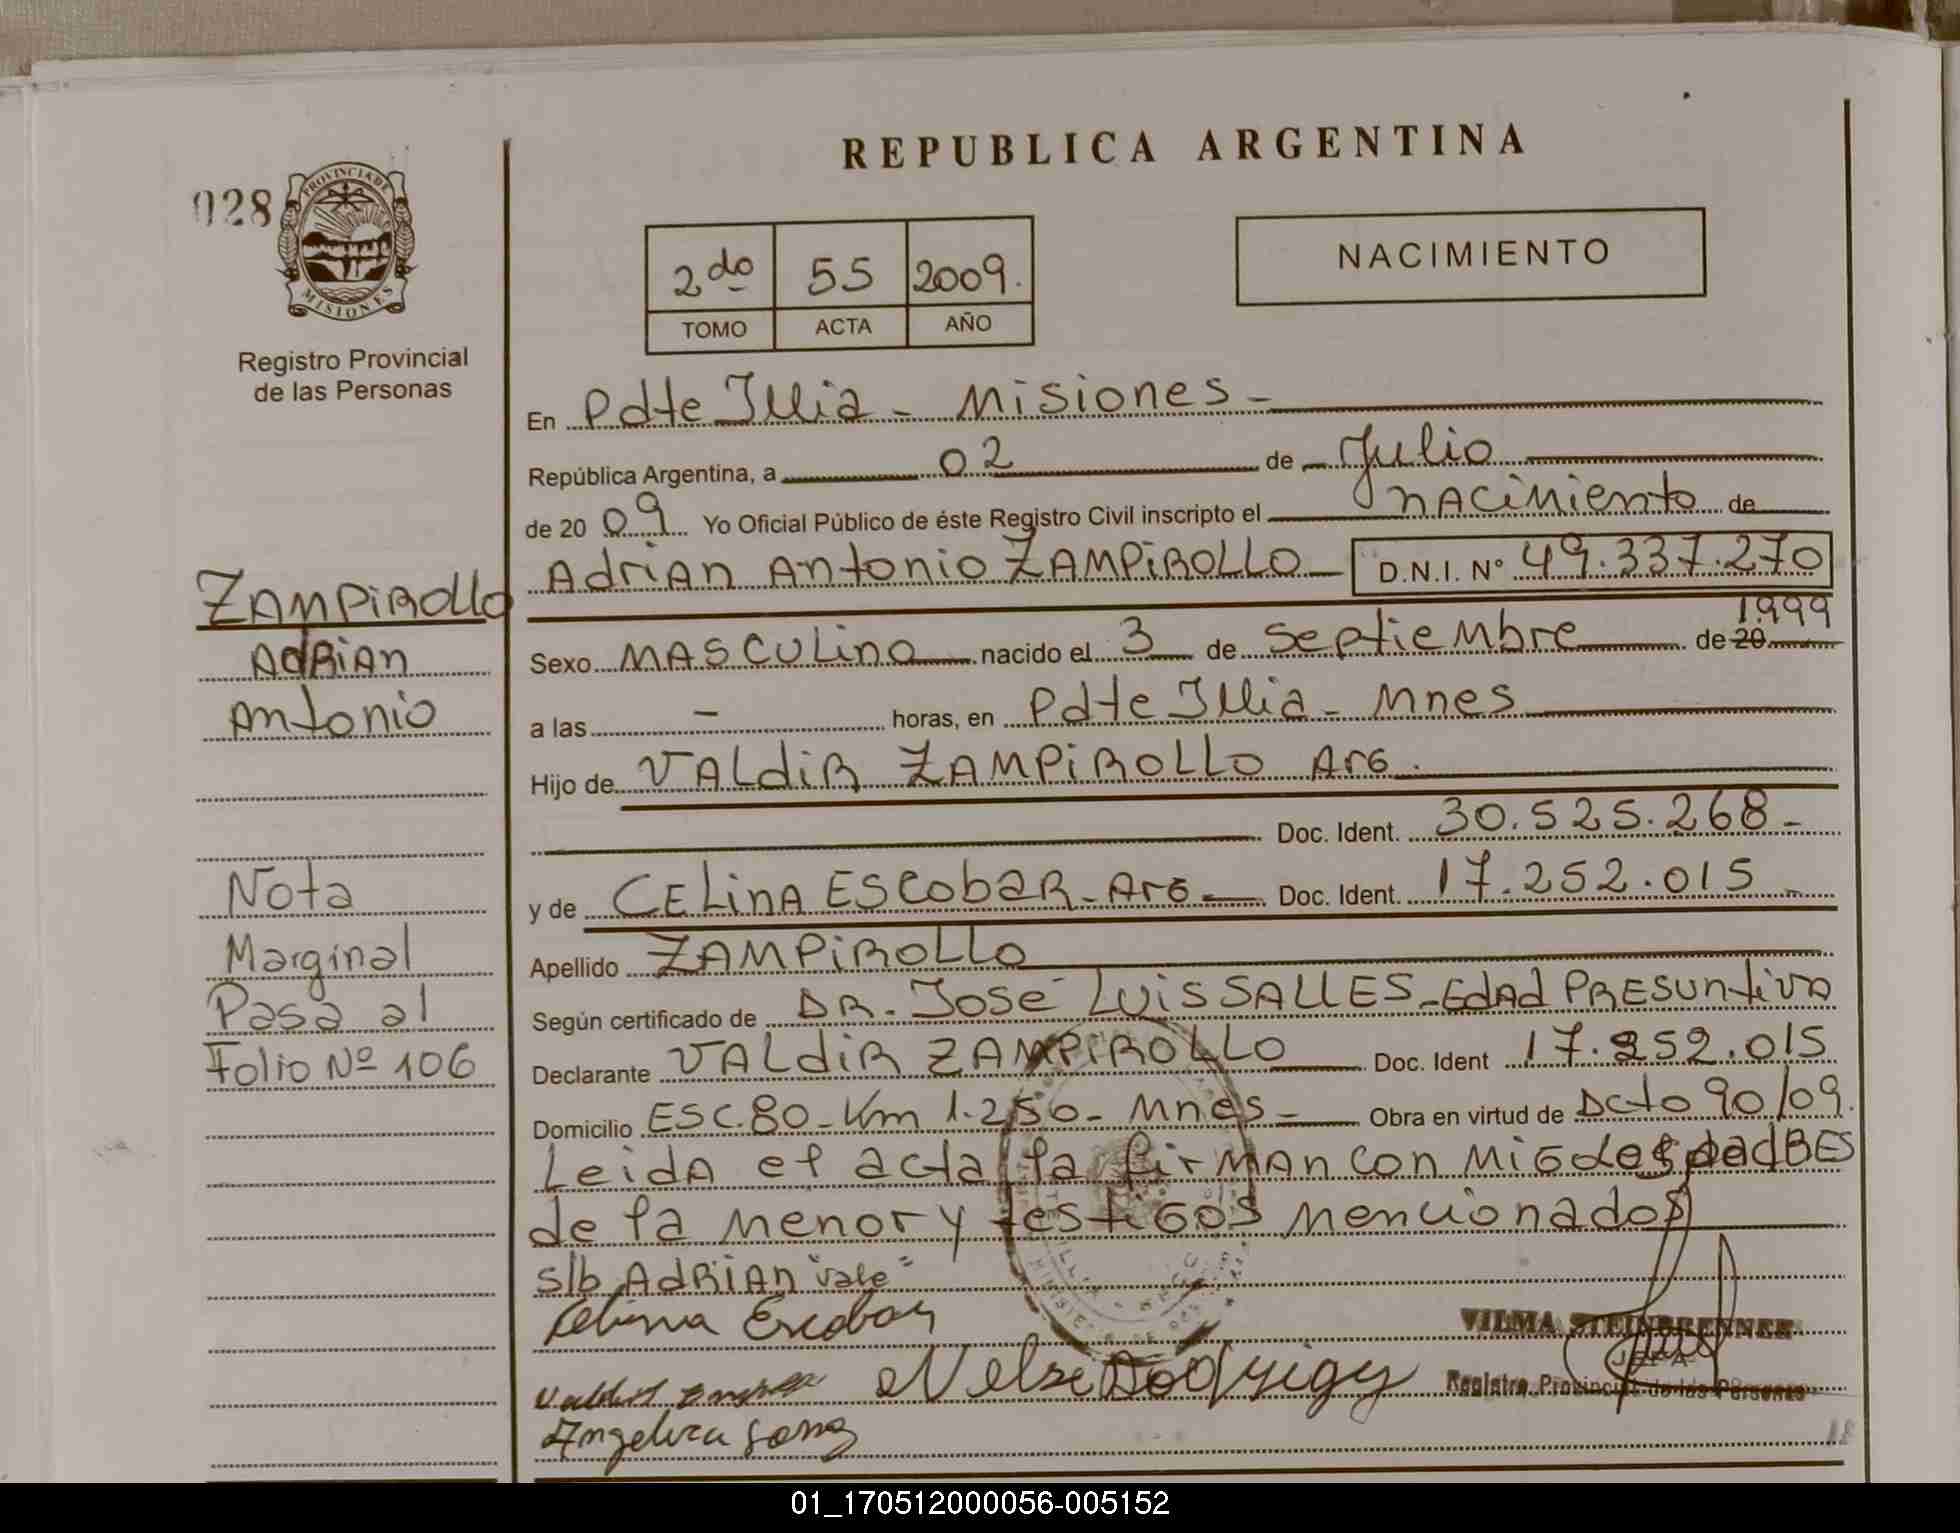 REPUBLICA ARGENTINA
028
PROVINCIA DE
MISIONES
Registro Provincial
de las Personas
2do 55 2009.
TOMO ACTA AÑO
NACIMIENTO
En Pdte Illia - Misiones -
República Argentina, a 02 de Julio
de 20 09 Yo Oficial Público de éste Registro Civil inscripto el nacimiento de
Adrian Antonio ZAMPIROLLO D.N.I. N° 49.337.270
ZAMPIROLLO
Adrian
Antonio
1.999
Sexo MASCULINO nacido el 3 de Septiembre de 20
a las - horas, en Pdte Illia - Mnes
Hijo de VALdiR ZAMPIROLLO ARG.
Doc. Ident. 30.525.268 -
y de CELinA ESCobaR - ARG - Doc. Ident. 17.252.015 -
Apellido ZAMPIROLLO
Según certificado de DR. José Luis SALLES - EdAd PRESUntiva
Declarante VALdiR ZAMPIROLLO Doc. Ident 17.252.015
Domicilio ESC. 80 - Km 1.250 - Mnes - Obra en virtud de Dcto 90/09.
Nota
Marginal
Pasa al
Folio Nº 106
Leida el acta la firman con migo los padres
de la menor y testigos mencionados
s/b AdRiAn "vale"
Celina Escobar
VILMA STEINBRENNER
JEFA
Registro Provincial de las Personas
Angelica
18
01_170512000056-005152